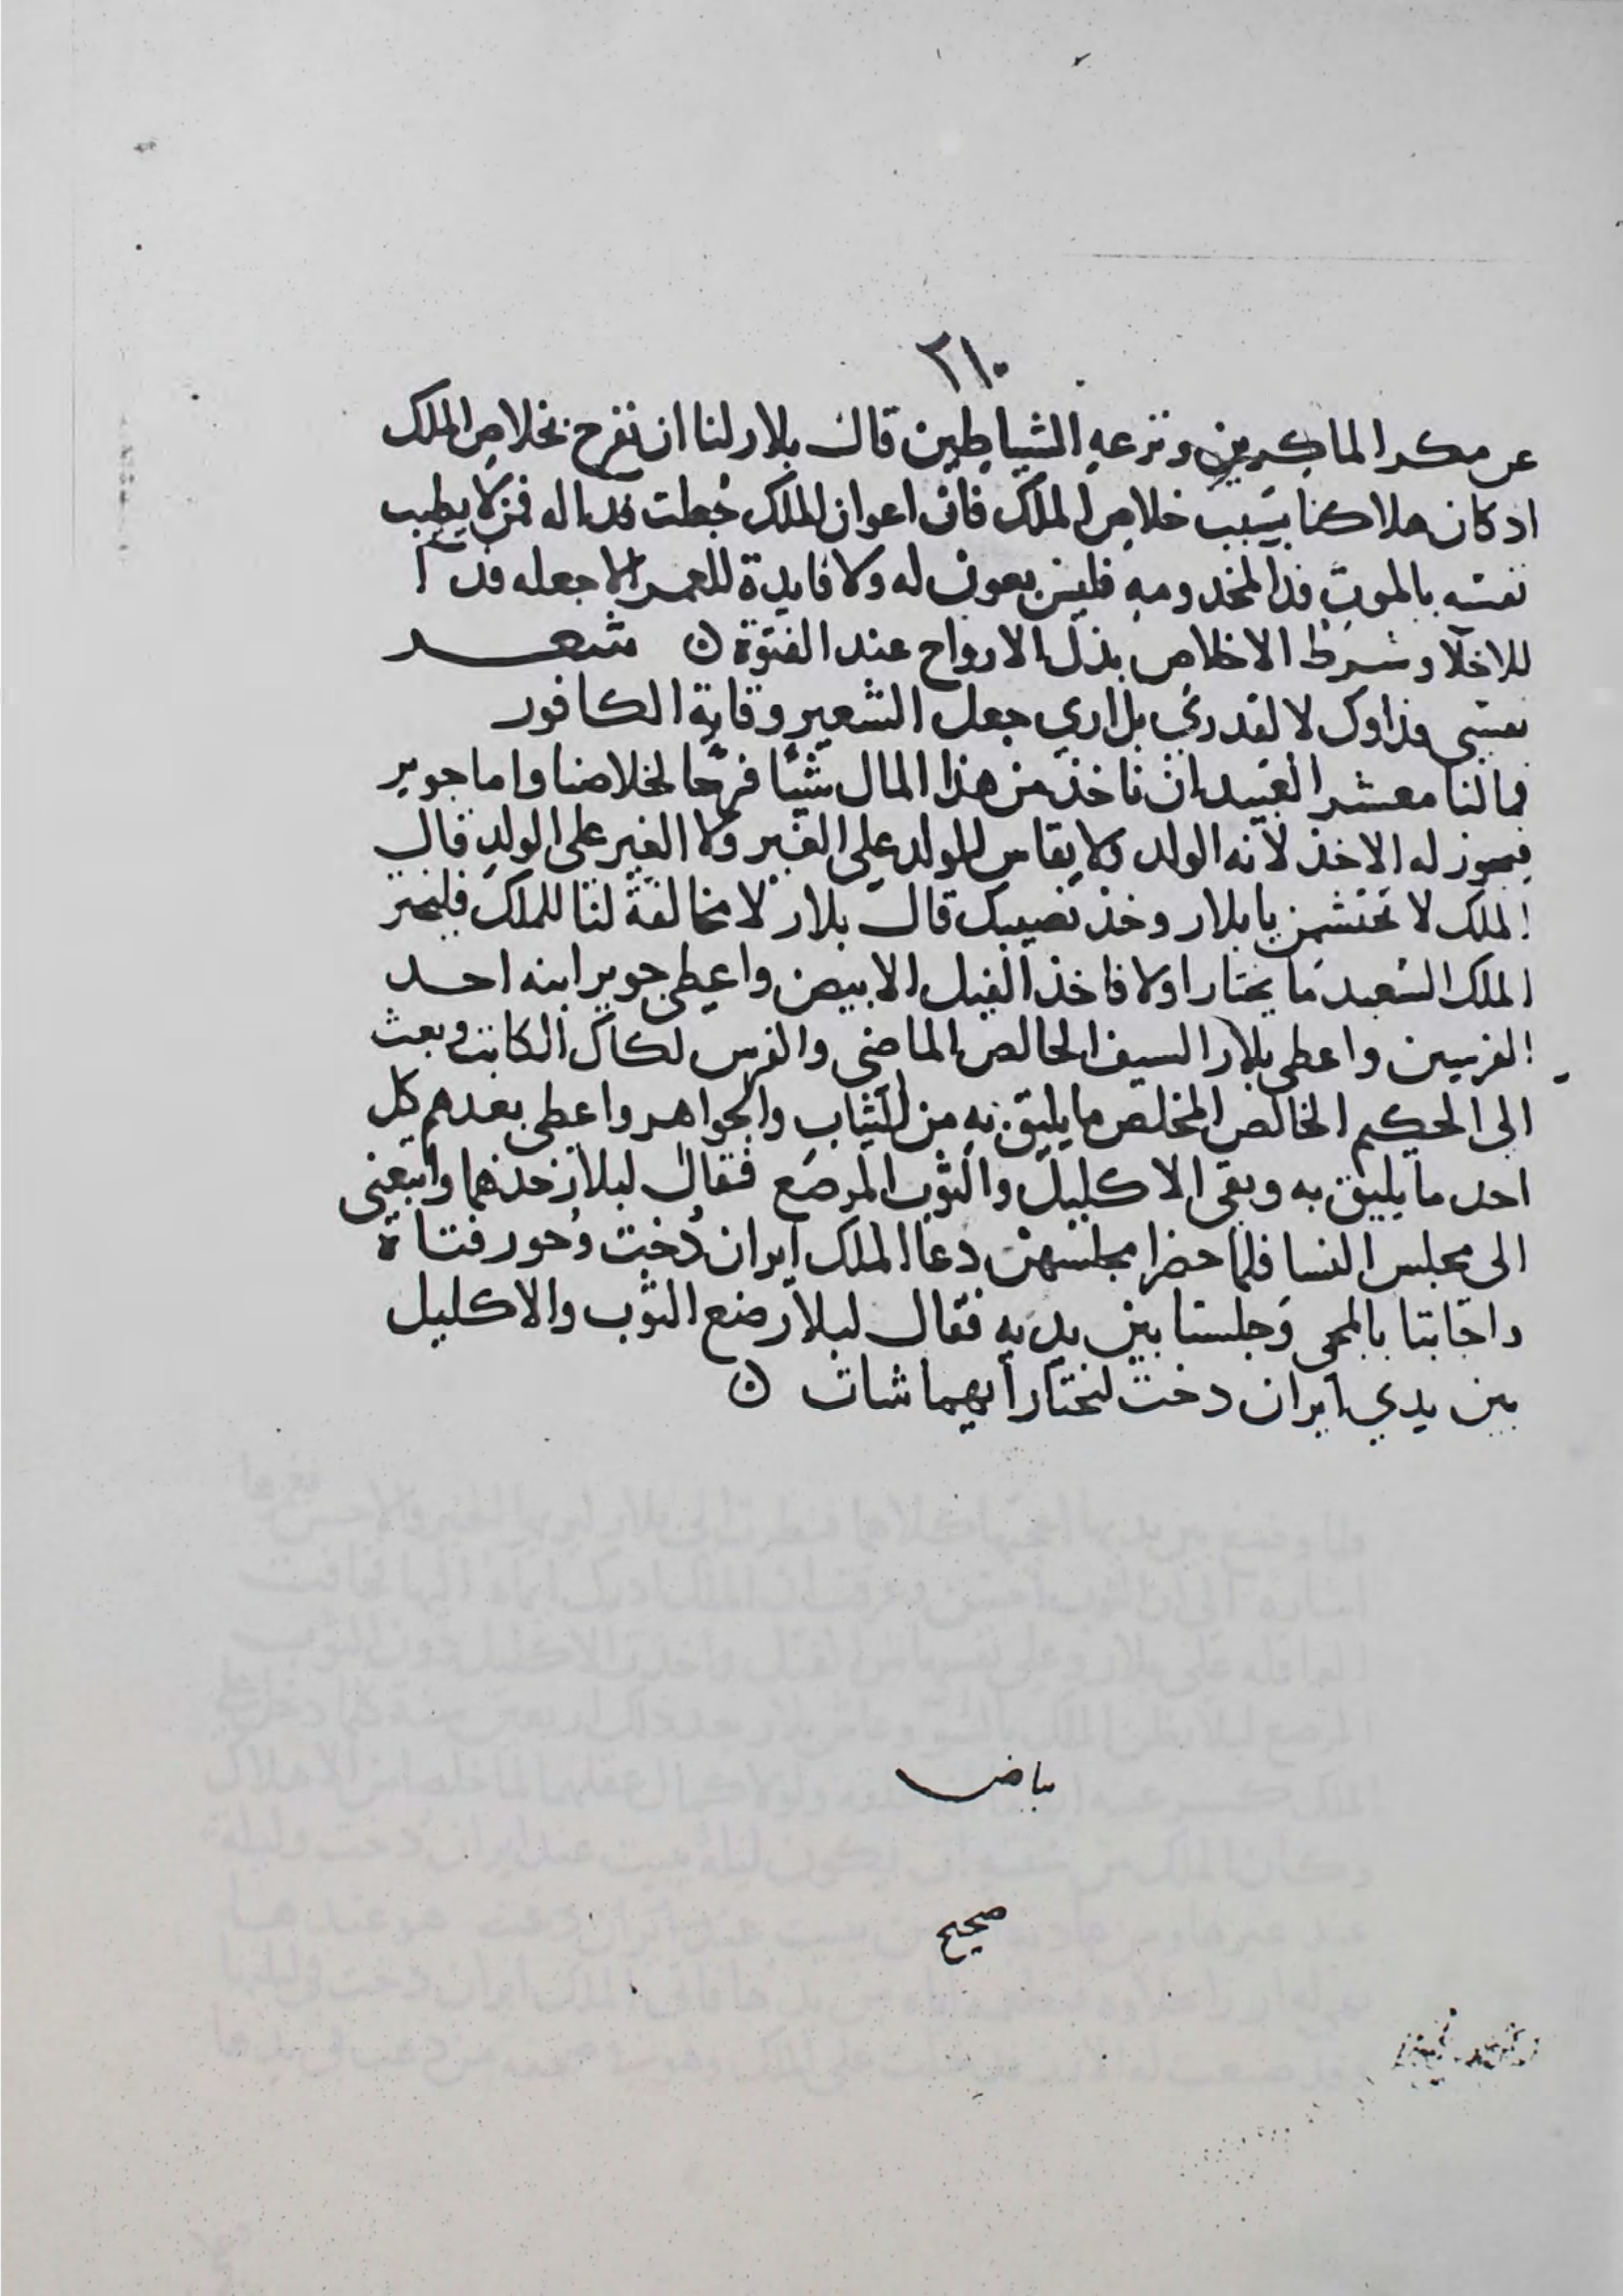 ٢١٠
عن مكر الماكرين ونزعه الشياطين قال بلار لنا ان نفرح بخلاص الملك
اد كان هلاكنا بسبب خلاص الملك فان اعوان الملك جُعلت فدا له فمن لا يطيب
نفسه بالموت فدا لمخدومه فليس بعون له ولا فايدة للعمر الا جعله فدا
للاخلا وشرط الاخلاص بذل الارواح عند الفتوة ن شعر
نفسي فداوك لا لقدري بل اري جعل الشعير وقاية الكافور
فما لنا معشر العبيد ان ناخذ من هذا المال شيًا فرحًا لخلاصنا واما جوير
فيجوز له الاخذ لانه الولد ولا يقاس الولد على الغير ولا الغير على الولد قال
الملك لا تحتشمن يا بلار وخذ نصيبك قال بلار لا مخالفة لنا للملك فليختر
الملك السعيد ما يختار اولا فاخذ الفيل الابيض واعطى جوير ابنه احد
الفرسين واعطى بلار السيف الخالص الماضي والفرس لكال الكاتب وبعث
الى الحكيم الخالص المخلص ما يليق به من الثياب والجواهر واعطى بعدهم كل
احد ما يليق به وبقى الاكليل والثوب المرصع فقال لبلار خذهما واتبعنى
الى مجلس النسا فلما حضرا مجلسهن دعا الملك ايران دُخت وحور فتاة
واجابتا بالمجى وجلستا بين يديه فقال لبلار ضع الثوب والاكليل
بين يدي ايران دخت لتختار ايهما شات ن
بياض
صحيح